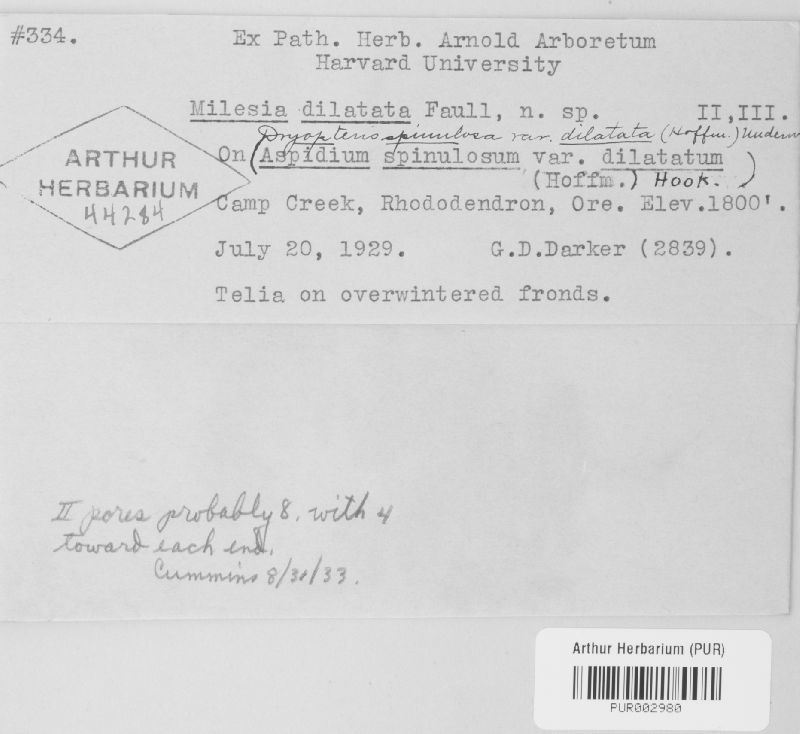 #334. Ex Path. Herb. Arnold Arboretum
Harvard University
Milesia dilatata Faull, n. sp. II, III.
Dryopteris spinulosa var. dilatata (Hoffm.) Underw
On (Aspidium spinulosum var. dilatatum
(Hoffm.) Hook.)
ARTHUR
HERBARIUM
44284
Camp Creek, Rhododendron, Ore. Elev.1800'.
July 20, 1929. G.D.Darker (2839).
Telia on overwintered fronds.
II pores probably 8, with 4
toward each end.
Cummins 8/30/33.
Arthur Herbarium (PUR)
PUR002980